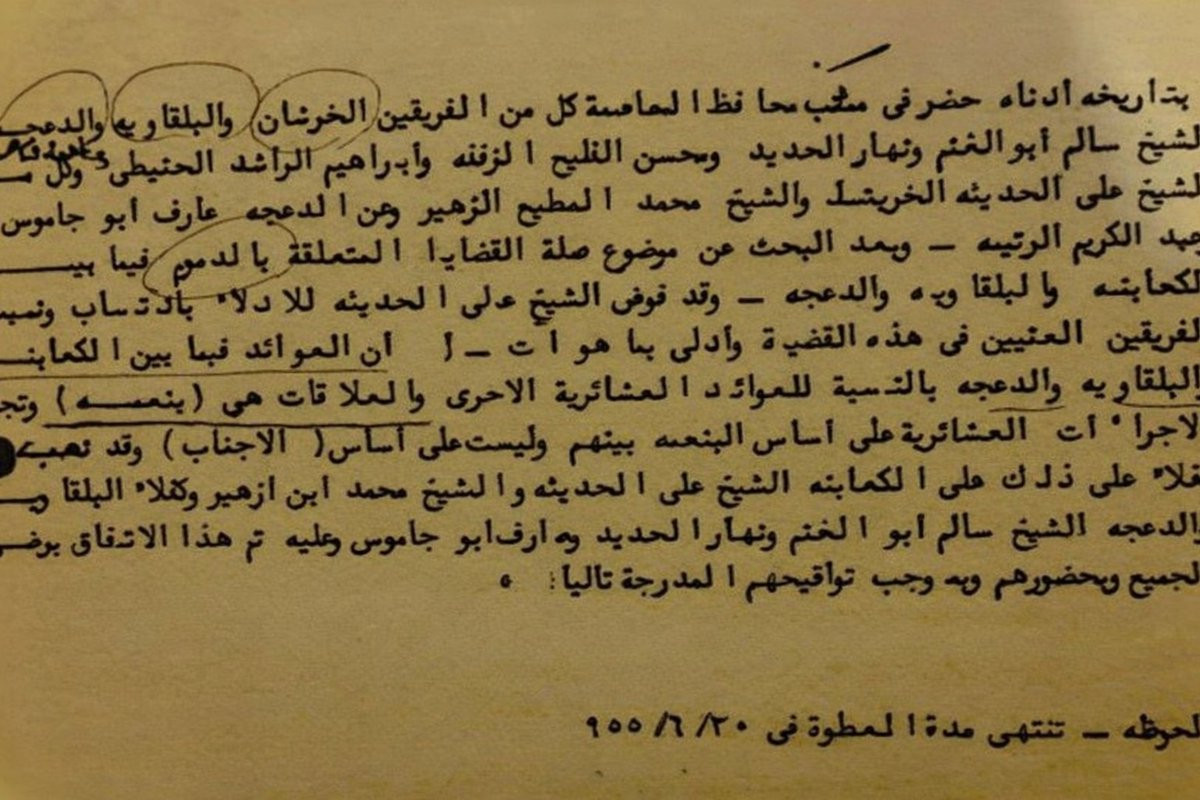 بتاريخه أدناه حضر في مكتب محافظ العاصمة كل من الفريقين الخرشان والبلقاويه والدعجـ
لشيخ سالم أبو الغنم ونهار الحديد ومحسن الفليح الزفنه وأبراهيم الراشد الحنيطي وكل
لشيخ على الحديثه الخريشا والشيخ محمد المطيع الزهير وعن الدعجه عارف أبو جاموس
عبد الكريم الرتيمه ــ وبعد البحث عن موضوع صلة القضايا المتعلقة بالدموم فيما بيـــ
لكعابنه والبلقاويه والدعجه ــ وقد فوض الشيخ على الحديثه للادلاء
لفريقين العنيين في هذه القضية وأدلى بما هو أت ــ أن العوائد فيما بين الكعابنـ
البلقاويه والدعجه بالنسبة للعوائد العشائرية الاحرى والعلاقات هي (بنعمـــه) وتجـ
لاجراءأت العشائرية على أساس البنعمه بينهم وليست على أساس (الاجناب) وقد
فلاء على ذلك على الكعابنه الشيخ على الحديثه والشيخ محمد ابن ازهير وكفلاء البلقاويـ
والدعجه الشيخ سالم أبو الغنم ونهار الحديد وعارف ابو جاموس وعليه تم هذا الاتفاق برضـ
لجميع وبحضورهم وبموجب تواقيحهم المدرجة تاليا:
لحوظه ــ تنتهي مدة العطوة في ٢٠/٦/٩٥٥